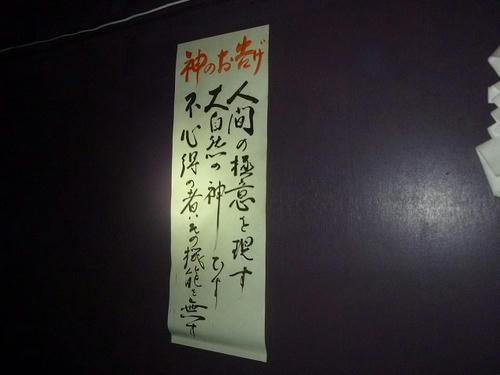 神のお告げ
人間の極意を現す
大自然の神
不心得の者はその機能を無す